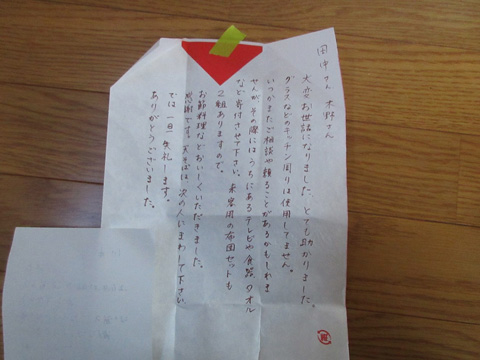 田中さん 木野さん
大変お世話になりました。とても助かりました。
グラスなどのキッチン周りは使用してません。
いつかまたご相談や頼ることがあるかもしれま
せんが、その際にはうちにあるテレビや食器、タオル
など寄付させて下さい。来客用の布団セットも
2組ありますので。
お節料理などおいしくいただきました。
感謝です。天そばは次の人にまわして下さい。
では一旦失礼します。
ありがとうございました。